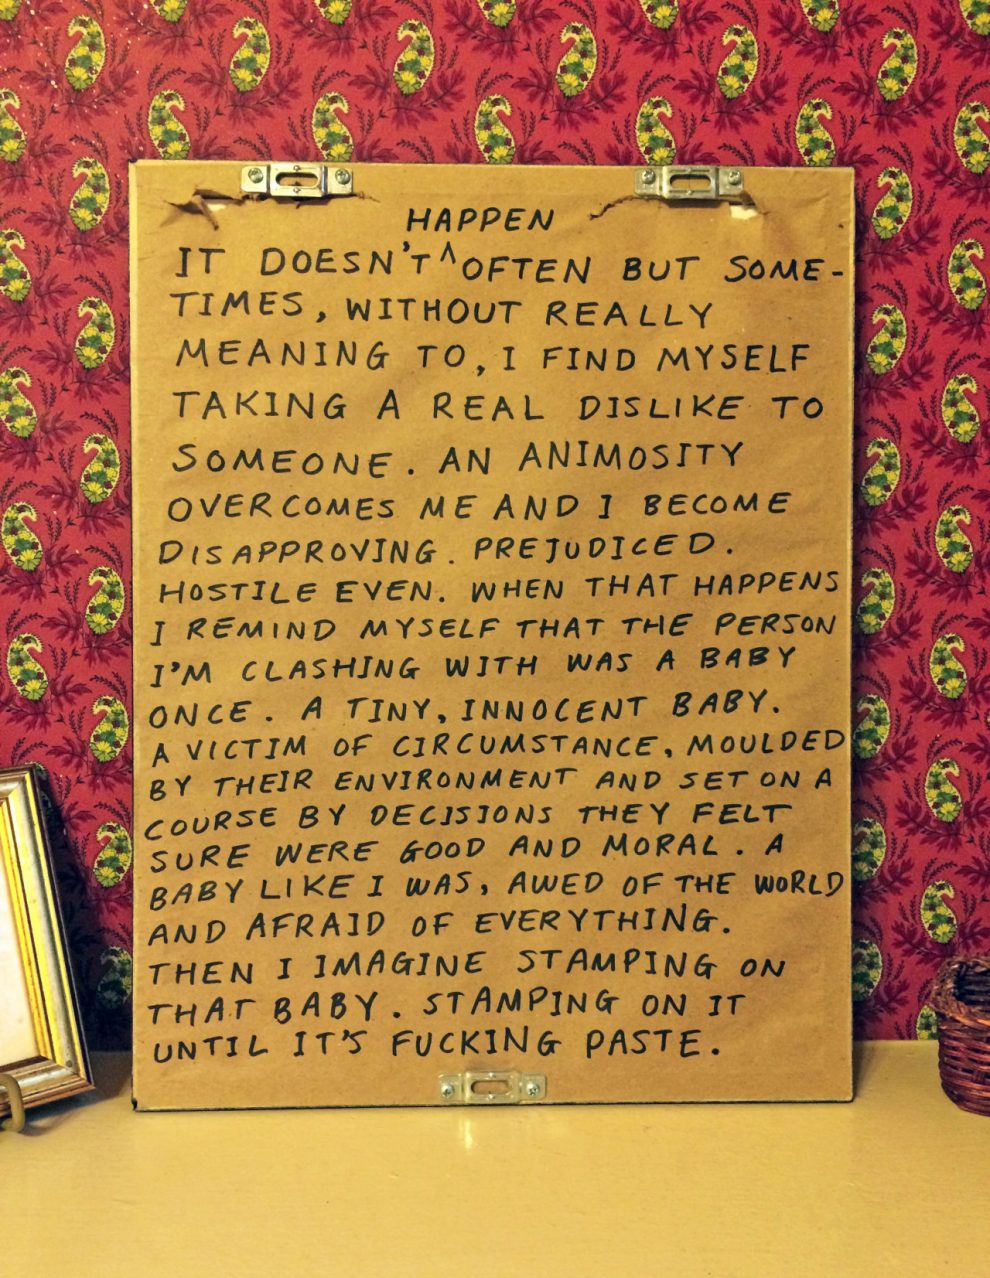 HAPPEN
IT DOESN'T ^ OFTEN BUT SOME-
TIMES, WITHOUT REALLY
MEANING TO, I FIND MYSELF
TAKING A REAL DISLIKE TO
SOMEONE. AN ANIMOSITY
OVERCOMES ME AND I BECOME
DISAPPROVING. PREJUDICED.
HOSTILE EVEN. WHEN THAT HAPPENS
I REMIND MYSELF THAT THE PERSON
I'M CLASHING WITH WAS A BABY
ONCE. A TINY, INNOCENT BABY.
A VICTIM OF CIRCUMSTANCE, MOULDED
BY THEIR ENVIRONMENT AND SET ON A
COURSE BY DECISIONS THEY FELT
SURE WERE GOOD AND MORAL. A
BABY LIKE I WAS, AWED OF THE WORLD
AND AFRAID OF EVERYTHING.
THEN I IMAGINE STAMPING ON
THAT BABY. STAMPING ON IT
UNTIL IT'S FUCKING PASTE.